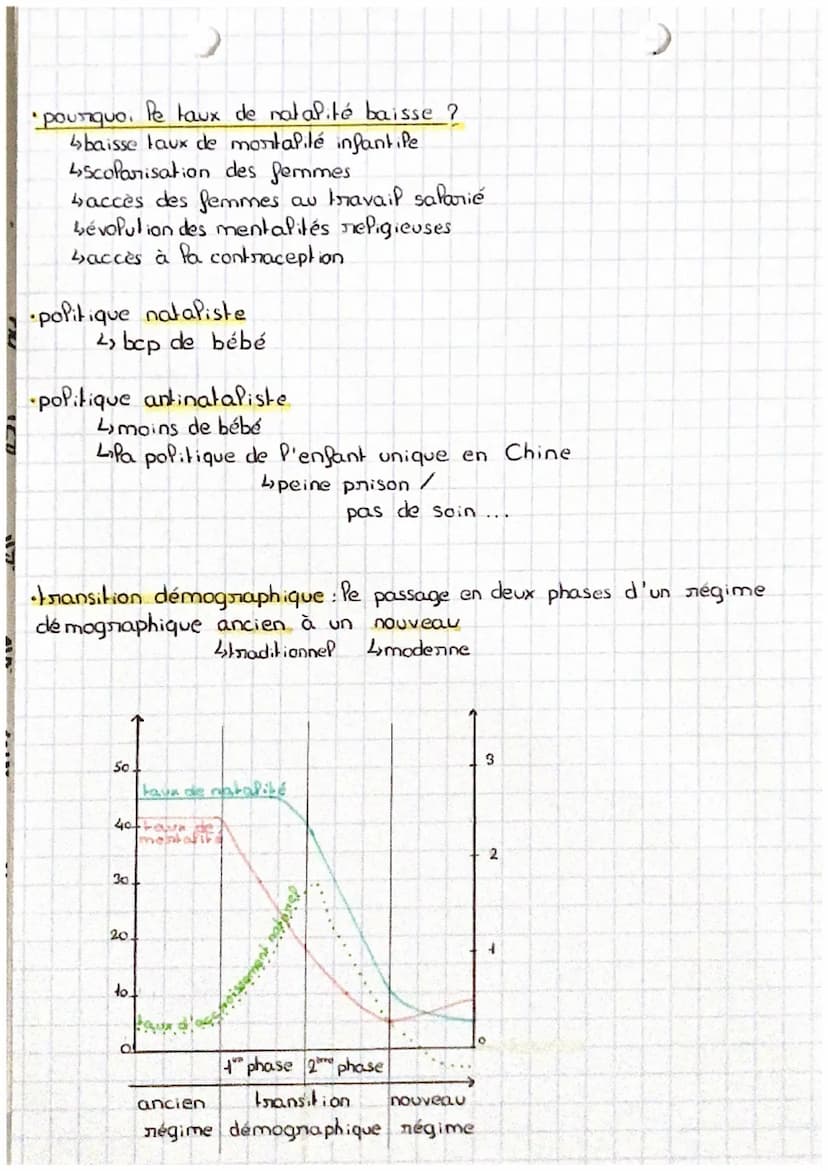 • pourquoi le taux de natalité baisse ?
↳ baisse taux de mortalité infantile
↳ scolarisation des femmes
↳ accès des femmes au travail salarié
↳ évolution des mentalités religieuses
↳ accès à la contraception
• politique nataliste
↳ bcp de bébé
• politique antinataliste
↳ moins de bébé
↳ la politique de l'enfant unique en Chine
↳ peine prison /
pas de soin ...
• transition démographique : le passage en deux phases d'un régime
démographique ancien à un nouveau
↳ traditionnel ↳ moderne
50
3
taux de natalité
40
taux de
mortalité
2
30
taux d'accroissement naturel
20
1
10
0
0
1ère phase 2ème phase
ancien transition nouveau
régime démographique régime